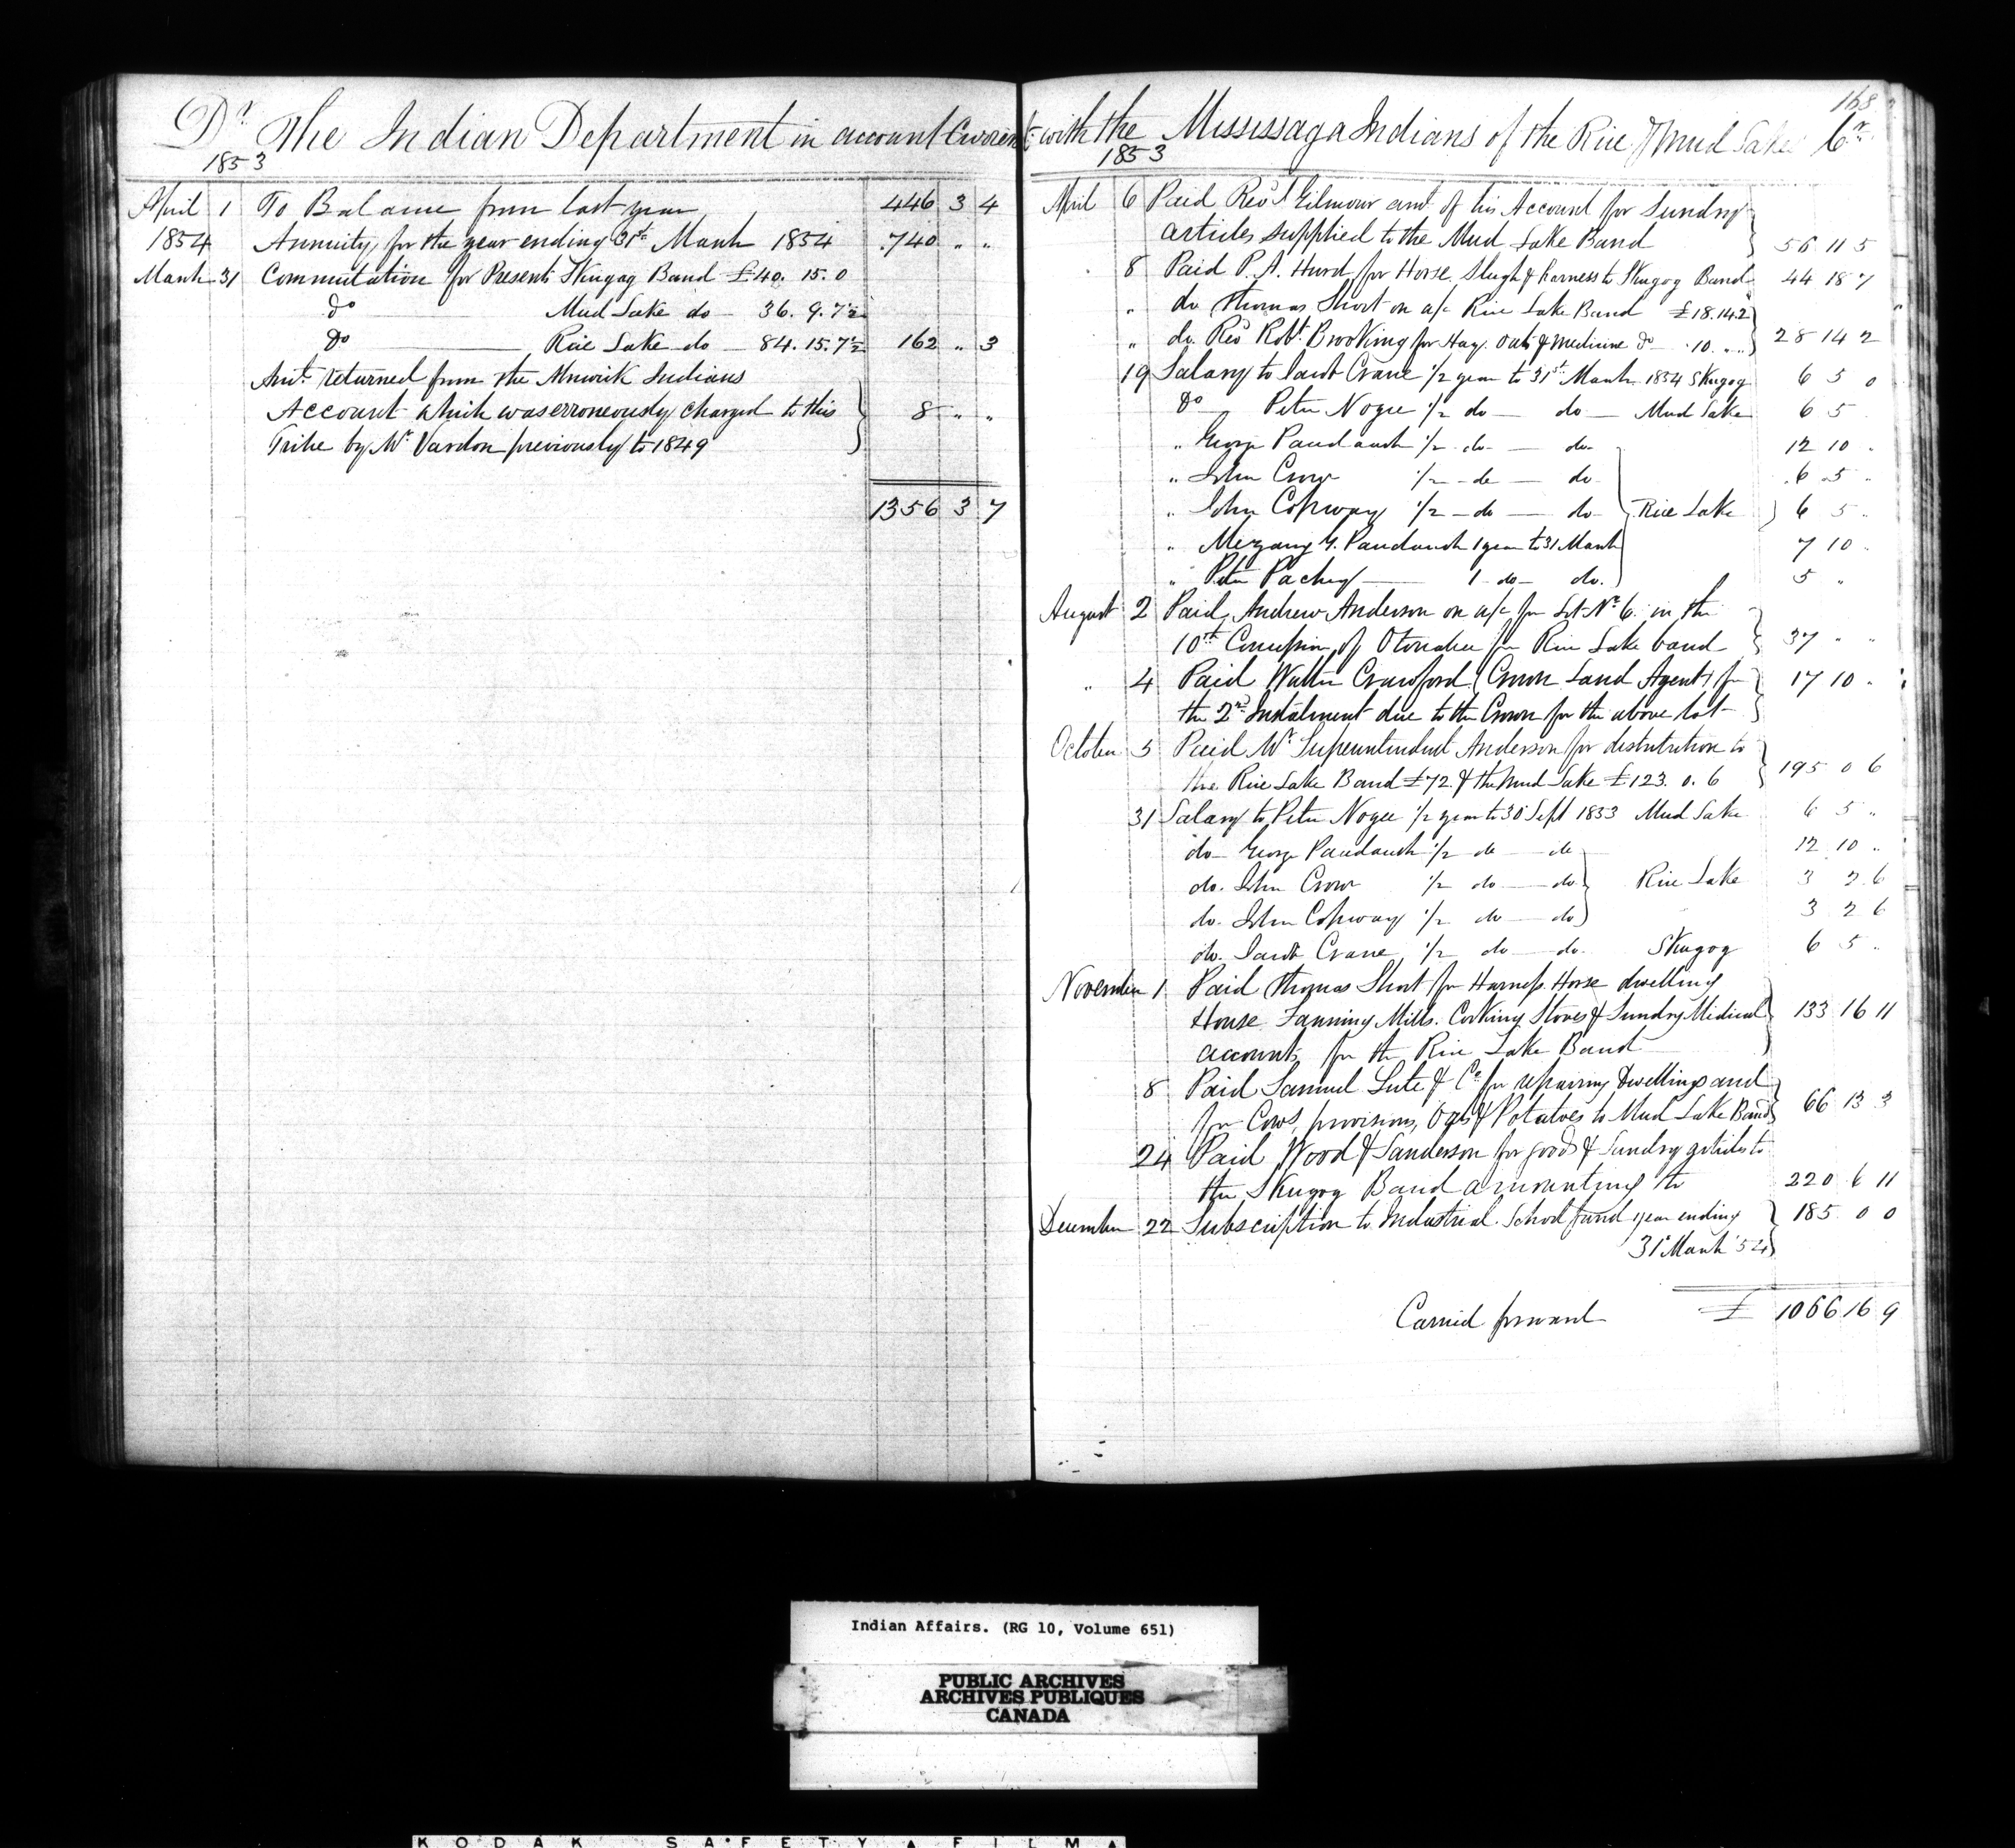 Dr The Indian Department in account Current with the Mississaga Indians of the Rice & Mud Lakes Cr
168
1853
April 1 To Balance from last year 446 3 4
1854 Annuity, for the year ending 31st March 1854 740 " "
March 31 Commutation for Presents Skugog Band £40. 15. 0
do Mud Lake do 36. 9. 7½
do Rice Lake do 84. 15. 7½ 162 " 3
Amt. returned from the Alnwick Indians
Account which was erroneously charged to this 8 " "
Tribe by Mr Vardon previously to 1849
1356 3 7
1853
April 6 Paid Revd Gilmour amt of his Account for Sundry
articles supplied to the Mud Lake Band 56 11 5
8 Paid P. A. Hurd for Horse, Sleigh & harness to Skugog Band 44 18 7
" do Thomas Short on a/c Rice Lake Band £18.14.2
" do. Rev Robt. Brooking for Hay. Oats & Medicine do 10. " " 28 14 2
19 Salary to Crane 1/2 year to 31st March 1854 Skugog 6 5 0
do Peter Nogee 1/2 do do Mud Lake 6 5
" George Paudaush 1/2 do do 12 10 "
" John Crow 1/2 do do 6 5 "
" John Copway 1/2 do do Rice Lake 6 5 "
" Mezang G. Paudaush 1 year to 31 March 7 10 "
" Peter 1 do do. 5 "
August 2 Paid Andrew Anderson on a/c for Lot No 6. in the
10th Concession of Otonabee for Rice Lake band 37 " "
" 4 Paid Walter Crawford (Crown Land Agent) for 17 10 "
the 2nd Instalment due to the Crown for the above lot
October 5 Paid Mr Superintendent Anderson for distribution to
the Rice Lake Band £72. & the Mud Lake £123. 0. 6 195 0 6
31 Salary to Peter Nogee 1/2 year to 30 Sept 1853 Mud Lake 6 5 "
do George Paudaush 1/2 do do 12 10 "
do. John Crow 1/2 do do Rice Lake 3 2 6
do. John Copway 1/2 do do 3 2 6
do. Crane 1/2 do do. Skugog 6 5 "
November 1 Paid Thomas Short for Harness. Horse dwelling
House. Fanning Mills. Cooking Stoves & Sundry Medical 133 16 11
accounts for the Rice Lake Band
8 Paid Samuel Lute & Co for repairing Dwellings and
for Cows, provisions, Oats & Potatoes to Mud Lake Band 66 13 3
24 Paid Wood & Sanderson for goods & Sundry articles to
the Skugog Band amounting to 220 6 11
December 22 Subscription to Industrial School fund 1 year ending 185 0 0
31 March '54
Carried forward £ 1066 16 9
Indian Affairs. (RG 10, Volume 651)
PUBLIC ARCHIVES
ARCHIVES PUBLIQUES
CANADA
KODAK SAFETY FILM